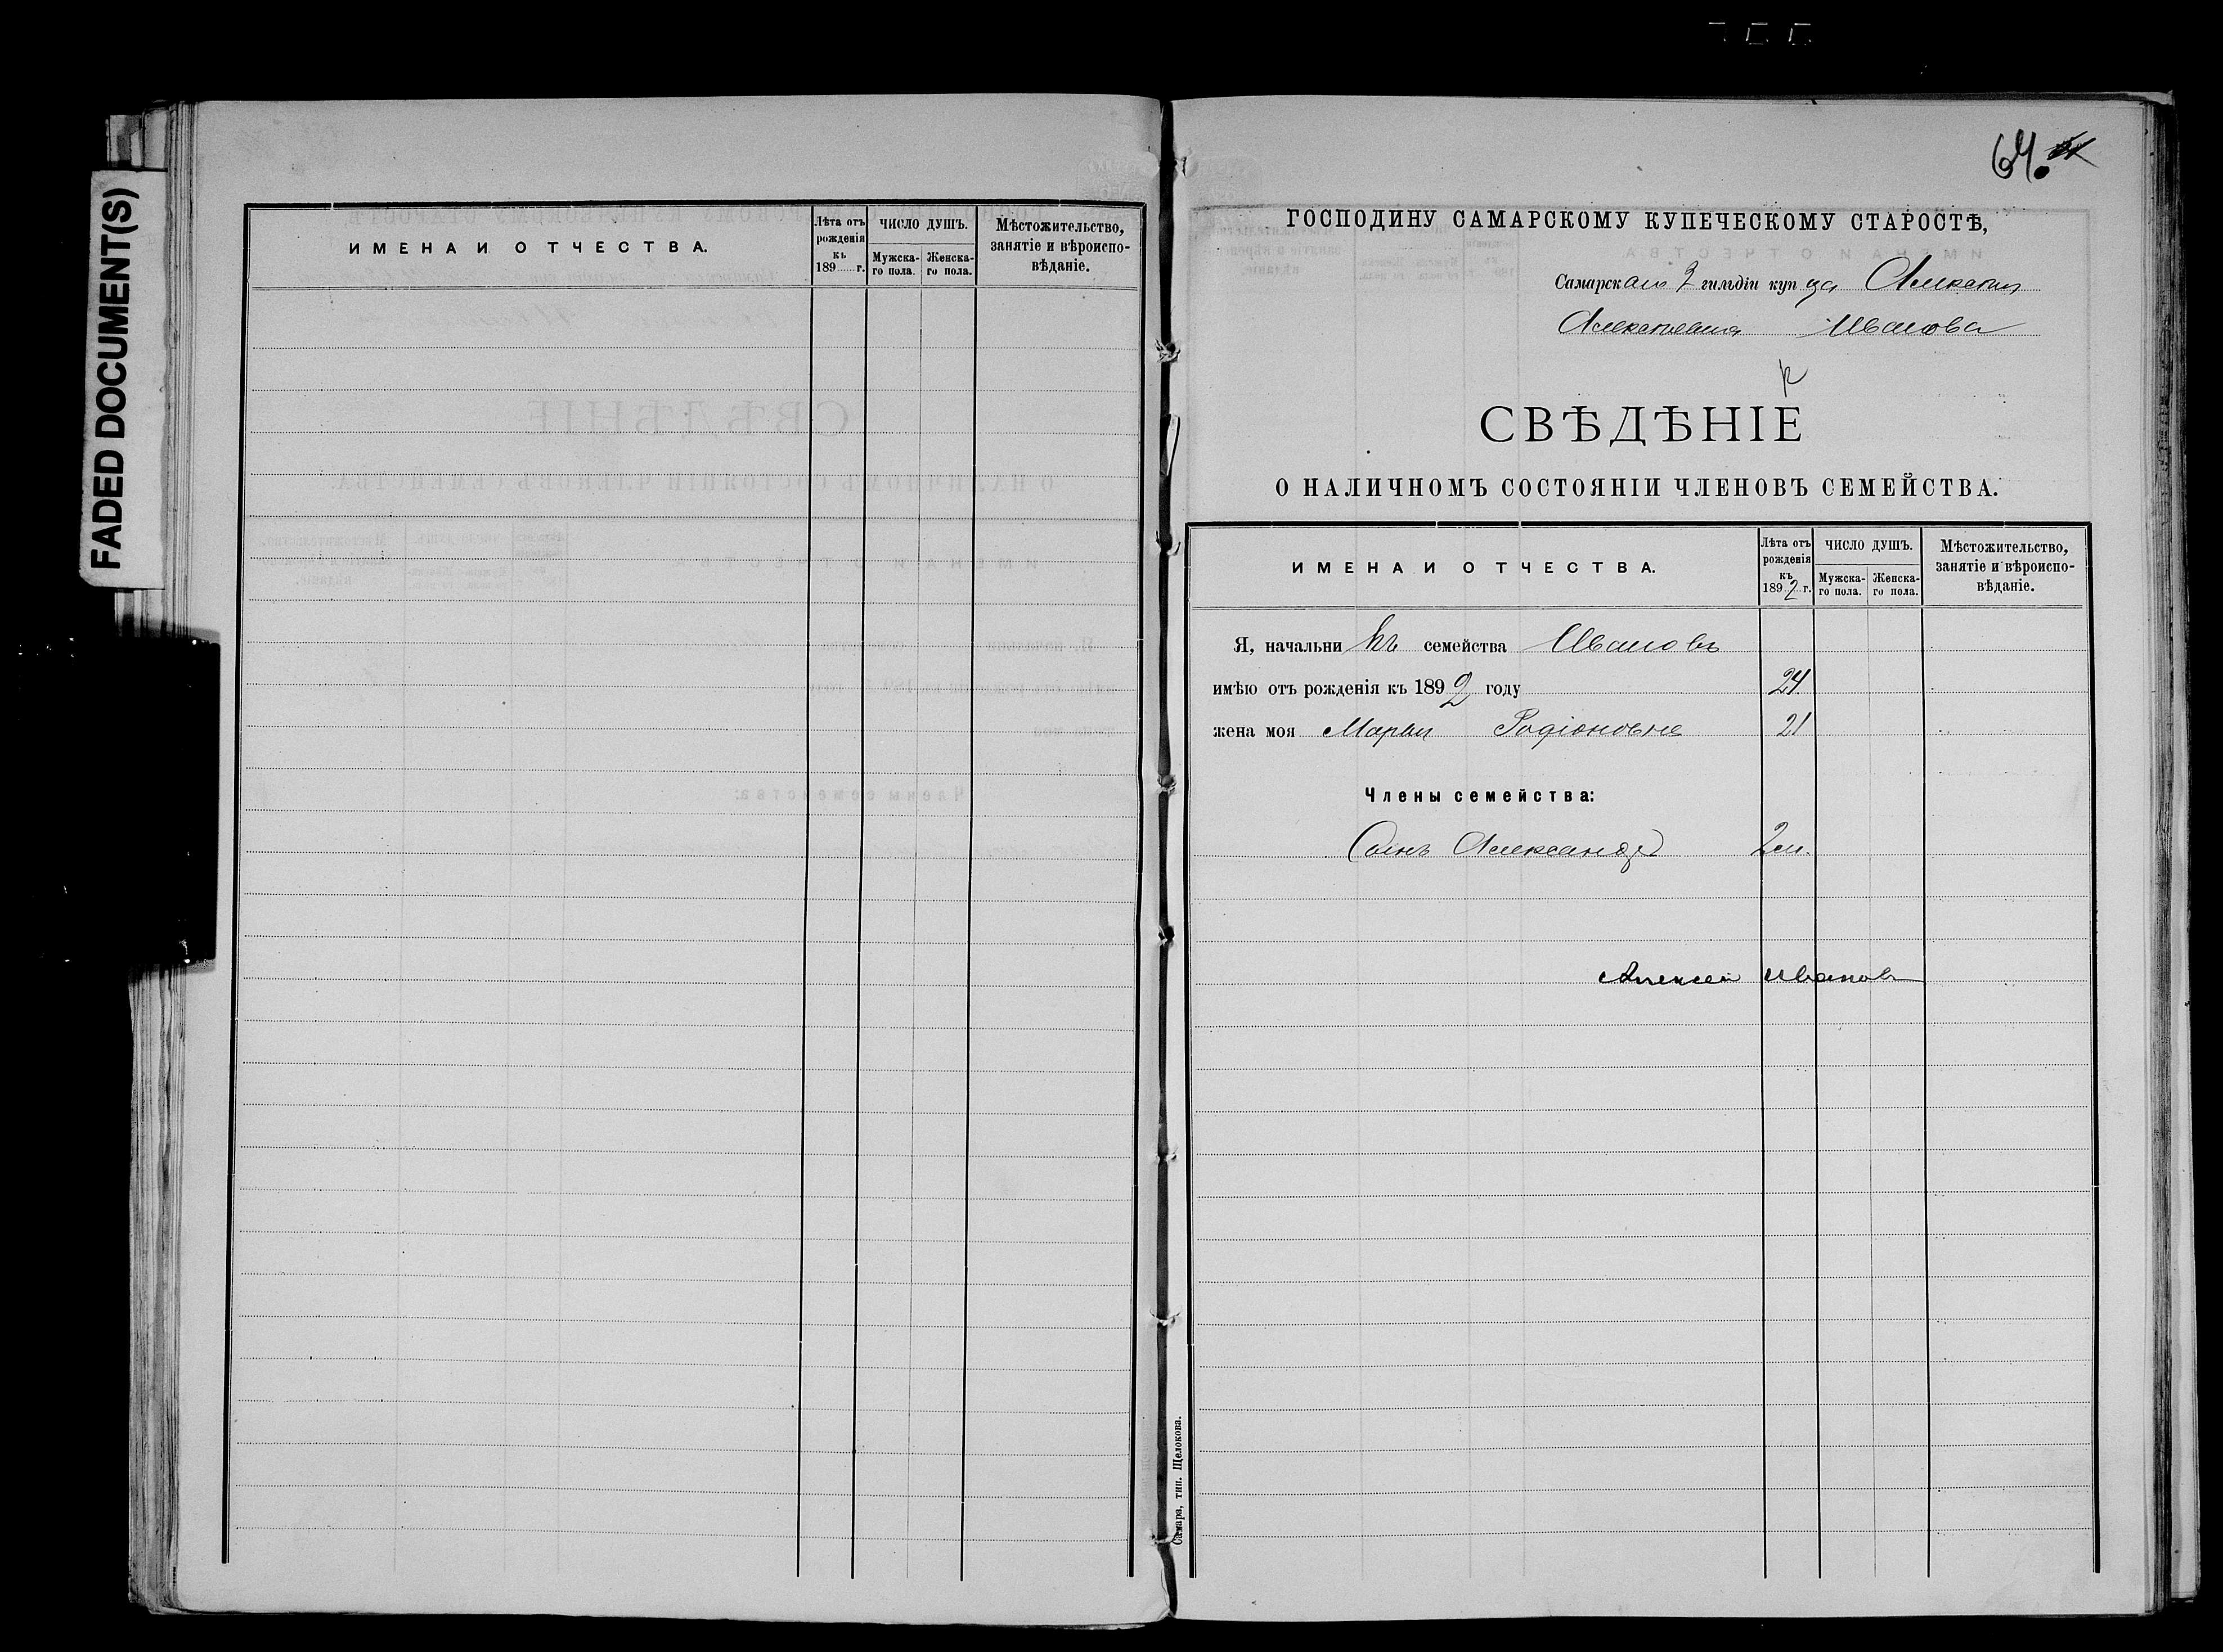 FADED DOCUMENT(S)
ИМЕНА И ОТЧЕСТВА.
Лѣта отъ рожденія къ 189 г.
ЧИСЛО ДУШЪ.
Мужска-го пола.
Женска-го пола.
Мѣстожительство, занятіе и вѣроиспо-вѣданіе.
64.
ГОСПОДИНУ САМАРСКОМУ КУПЕЧЕСКОМУ СТАРОСТѢ,
Самарскаго 2 гильдіи купца Алексѣя
Алексѣевича Иванова
СВѢДѢНІЕ
О НАЛИЧНОМЪ СОСТОЯНІИ ЧЛЕНОВЪ СЕМЕЙСТВА.
ИМЕНА И ОТЧЕСТВА.
Лѣта отъ рожденія къ 1892 г.
ЧИСЛО ДУШЪ.
Мужска-го пола.
Женска-го пола.
Мѣстожительство, занятіе и вѣроиспо-вѣданіе.
Я, начальникъ семейства Ивановъ
имѣю отъ рожденія къ 1892 году 24
жена моя Марья Родіоновна 21
Члены семейства:
Сынъ Александръ 2 м.
Алексей Иванов
Самара, тип. Щелокова.